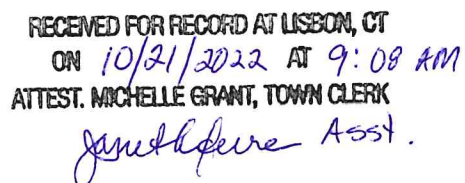 RECEIVED FOR RECORD AT LISBON, CT
ON 10/21/2022 AT 9:08 AM
ATTEST. MICHELLE GRANT, TOWN CLERK
Asst.